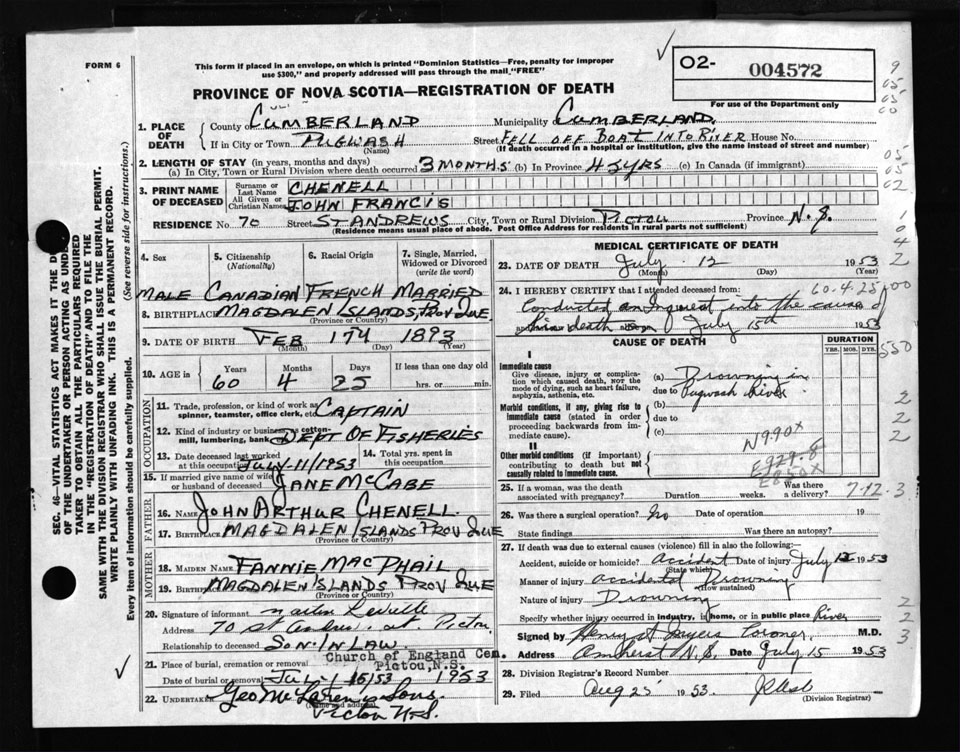 FORM 6
This form if placed in an envelope, on which is printed "Dominion Statistics—Free, penalty for improper
use $300," and properly addressed will pass through the mail "FREE"
PROVINCE OF NOVA SCOTIA—REGISTRATION OF DEATH
O2- 004572
For use of the Department only
1. PLACE OF DEATH
County of CUMBERLAND Municipality CUMBERLAND
If in City or Town PUGWASH (Name) Street FELL OFF BOAT INTO RIVER House No.
(If death occurred in a hospital or institution, give the name instead of street and number)
2. LENGTH OF STAY (in years, months and days)
(a) In City, Town or Rural Division where death occurred 3 MONTHS (b) In Province 42 YRS (c) In Canada (if immigrant)
3. PRINT NAME OF DECEASED
Surname or Last Name CHENELL
All Given or Christian Names JOHN FRANCIS
RESIDENCE No. 70 Street ST ANDREWS City, Town or Rural Division PICTOU Province N.S.
(Residence means usual place of abode. Post Office Address for residents in rural parts not sufficient)
4. Sex 5. Citizenship (Nationality) 6. Racial Origin 7. Single, Married, Widowed or Divorced (write the word)
MALE CANADIAN FRENCH MARRIED
8. BIRTHPLACE MAGDALEN ISLANDS, PROV QUE.
(Province or Country)
9. DATE OF BIRTH FEB 17TH 1893
(Month) (Day) (Year)
10. AGE in Years Months Days If less than one day old
60 4 25 hrs. or min.
OCCUPATION
11. Trade, profession, or kind of work as spinner, teamster, office clerk, etc. CAPTAIN
12. Kind of industry or business, as cotton-mill, lumbering, bank, DEPT OF FISHERIES
13. Date deceased last worked at this occupation JULY-11/1953 14. Total yrs. spent in this occupation
15. If married give name of wife or husband of deceased JANE MCCABE
FATHER
16. Name JOHN ARTHUR CHENELL
17. BIRTHPLACE MAGDALEN ISLANDS PROV QUE
(Province or Country)
MOTHER
18. MAIDEN NAME FANNIE MACPHAIL
19. BIRTHPLACE MAGDALEN ISLANDS PROV QUE
(Province or Country)
20. Signature of informant
Address 70 St Andrew. st. Pictou
Relationship to deceased SON-IN LAW
21. Place of burial, cremation or removal Church of England Cem. Pictou, N.S.
Date of burial or removal JULY 15/53 1953
22. UNDERTAKER Geo McLaren & Sons
(Name and address)
Pictou N.S.
MEDICAL CERTIFICATE OF DEATH
23. DATE OF DEATH July 12 1953
(Month) (Day) (Year)
24. I HEREBY CERTIFY that I attended deceased from: 60.4.25
Conducted an Inquest into the cause of
his death on July 15th 1953
CAUSE OF DEATH
DURATION
YRS. MOS. DYS.
I
Immediate cause
Give disease, injury or complication which caused death, NOT the mode of dying, such as heart failure, asphyxia, asthenia, etc.
(a) Drowning in
due to Pugwash River
Morbid conditions, if any, giving rise to immediate cause (stated in order proceeding backwards from immediate cause).
(b)
due to
(c)
II
Other morbid conditions (if important) contributing to death but not causally related to immediate cause.
N990X
E929.8
E850X
25. If a woman, was the death associated with pregnancy? Duration weeks. Was there a delivery?
26. Was there a surgical operation? No Date of operation 19
State findings Was there an autopsy?
27. If death was due to external causes (violence) fill in also the following:—
Accident, suicide or homicide? Accident Date of injury July 12 1953
(State which)
Manner of injury Accidental Drowning
(How sustained)
Nature of injury Drowning
Specify whether injury occurred in industry, in home, or in public place River
Signed by Coroner M.D.
Address Amherst N.S. Date July 15 1953
28. Division Registrar's Record Number
29. Filed Aug 25 1953.
(Division Registrar)
SEC. 46—VITAL STATISTICS ACT MAKES IT THE
OF THE UNDERTAKER OR PERSON ACTING AS UNDER
TAKER TO OBTAIN ALL THE PARTICULARS REQUIRED
IN THE "REGISTRATION OF DEATH" AND TO FILE THE
SAME WITH THE DIVISION REGISTRAR WHO SHALL ISSUE THE BURIAL PERMIT.
WRITE PLAINLY WITH UNFADING INK. THIS IS A PERMANENT RECORD.
Every item of information should be carefully supplied. (See reverse side for instructions.)